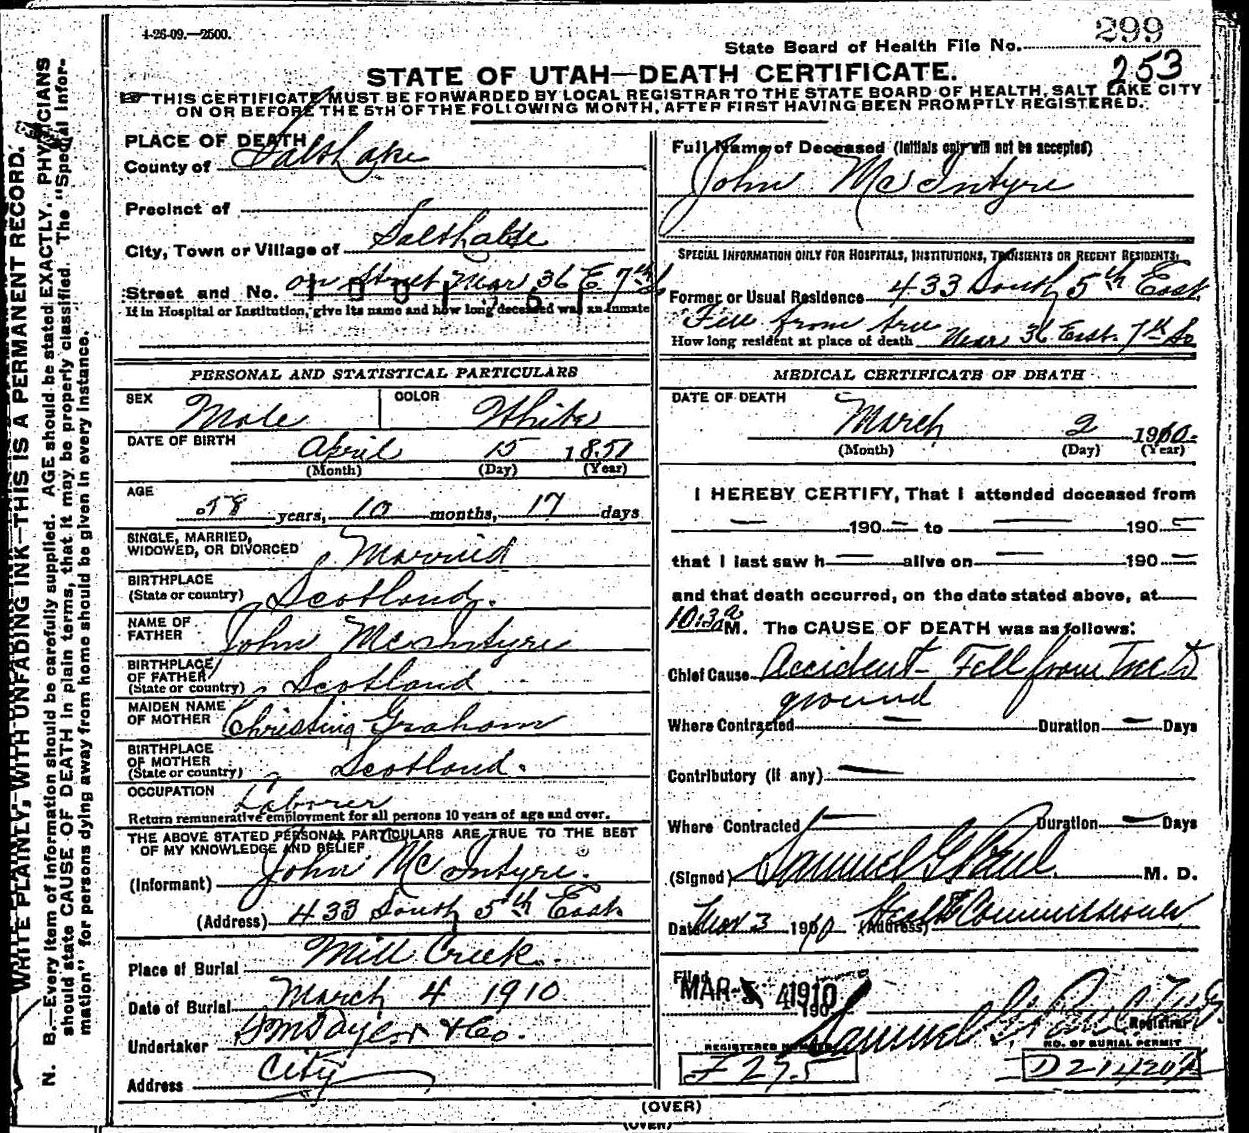 4-26-09.—2500.
299
State Board of Health File No.
253
STATE OF UTAH—DEATH CERTIFICATE.
THIS CERTIFICATE MUST BE FORWARDED BY LOCAL REGISTRAR TO THE STATE BOARD OF HEALTH, SALT LAKE CITY
ON OR BEFORE THE 5TH OF THE FOLLOWING MONTH, AFTER FIRST HAVING BEEN PROMPTLY REGISTERED.
WRITE PLAINLY, WITH UNFADING INK—THIS IS A PERMANENT RECORD.
N. B.—Every item of information should be carefully supplied. AGE should be stated EXACTLY. PHYSICIANS
should state CAUSE OF DEATH in plain terms, that it may be properly classified. The "Special Infor-
mation" for persons dying away from home should be given in every instance.
PLACE OF DEATH
County of Salt Lake
Precinct of
City, Town or Village of Salt Lake
Street and No. on Street near 36 E 7th So
If in Hospital or Institution, give its name and how long deceased was an inmate
PERSONAL AND STATISTICAL PARTICULARS
SEX Male COLOR White
DATE OF BIRTH April 15 1851
(Month) (Day) (Year)
AGE
58 years, 10 months, 17 days
SINGLE, MARRIED,
WIDOWED, OR DIVORCED Married
BIRTHPLACE
(State or country) Scotland.
NAME OF
FATHER John McIntyre
BIRTHPLACE
OF FATHER
(State or country) Scotland
MAIDEN NAME
OF MOTHER Christina Graham
BIRTHPLACE
OF MOTHER
(State or country) Scotland.
OCCUPATION Laborer
Return remunerative employment for all persons 10 years of age and over.
THE ABOVE STATED PERSONAL PARTICULARS ARE TRUE TO THE BEST
OF MY KNOWLEDGE AND BELIEF
(Informant) John McIntyre.
(Address) 433 South 5th East.
Place of Burial Mill Creek.
Date of Burial March 4 1910
Undertaker & Co.
Address City
Full Name of Deceased (Initials only will not be accepted)
John McIntyre
SPECIAL INFORMATION ONLY FOR HOSPITALS, INSTITUTIONS, TRANSIENTS OR RECENT RESIDENTS.
Former or Usual Residence 433 South 5th East.
Fell from tree
How long resident at place of death Near 36 East. 7th So
MEDICAL CERTIFICATE OF DEATH
DATE OF DEATH
March 2 1910.
(Month) (Day) (Year)
I HEREBY CERTIFY, That I attended deceased from
— 190 — to — 190 —
that I last saw h — alive on — 190 —
and that death occurred, on the date stated above, at
10:30 a M. The CAUSE OF DEATH was as follows:
Chief Cause Accident - Fell from Tree to
ground
Where Contracted — Duration — Days
Contributory (if any) —
Where Contracted — Duration — Days
(Signed) Samuel G. Paul M. D.
Date Mar 3 1910 (Address) Health Commissioner
Filed
MAR 4 1910
190
Samuel G. Paul
Registrar
REGISTERED NUMBER
F 275
NO. OF BURIAL PERMIT
D 21420
(OVER)
(OVER)